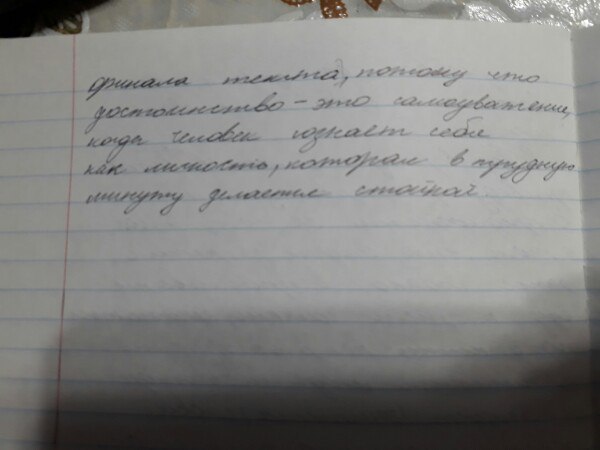 финала текста, потому что
достоинство – это самоуважение,
когда человекознает себя
как личность, которая в трудную
минуту делается стойкой.